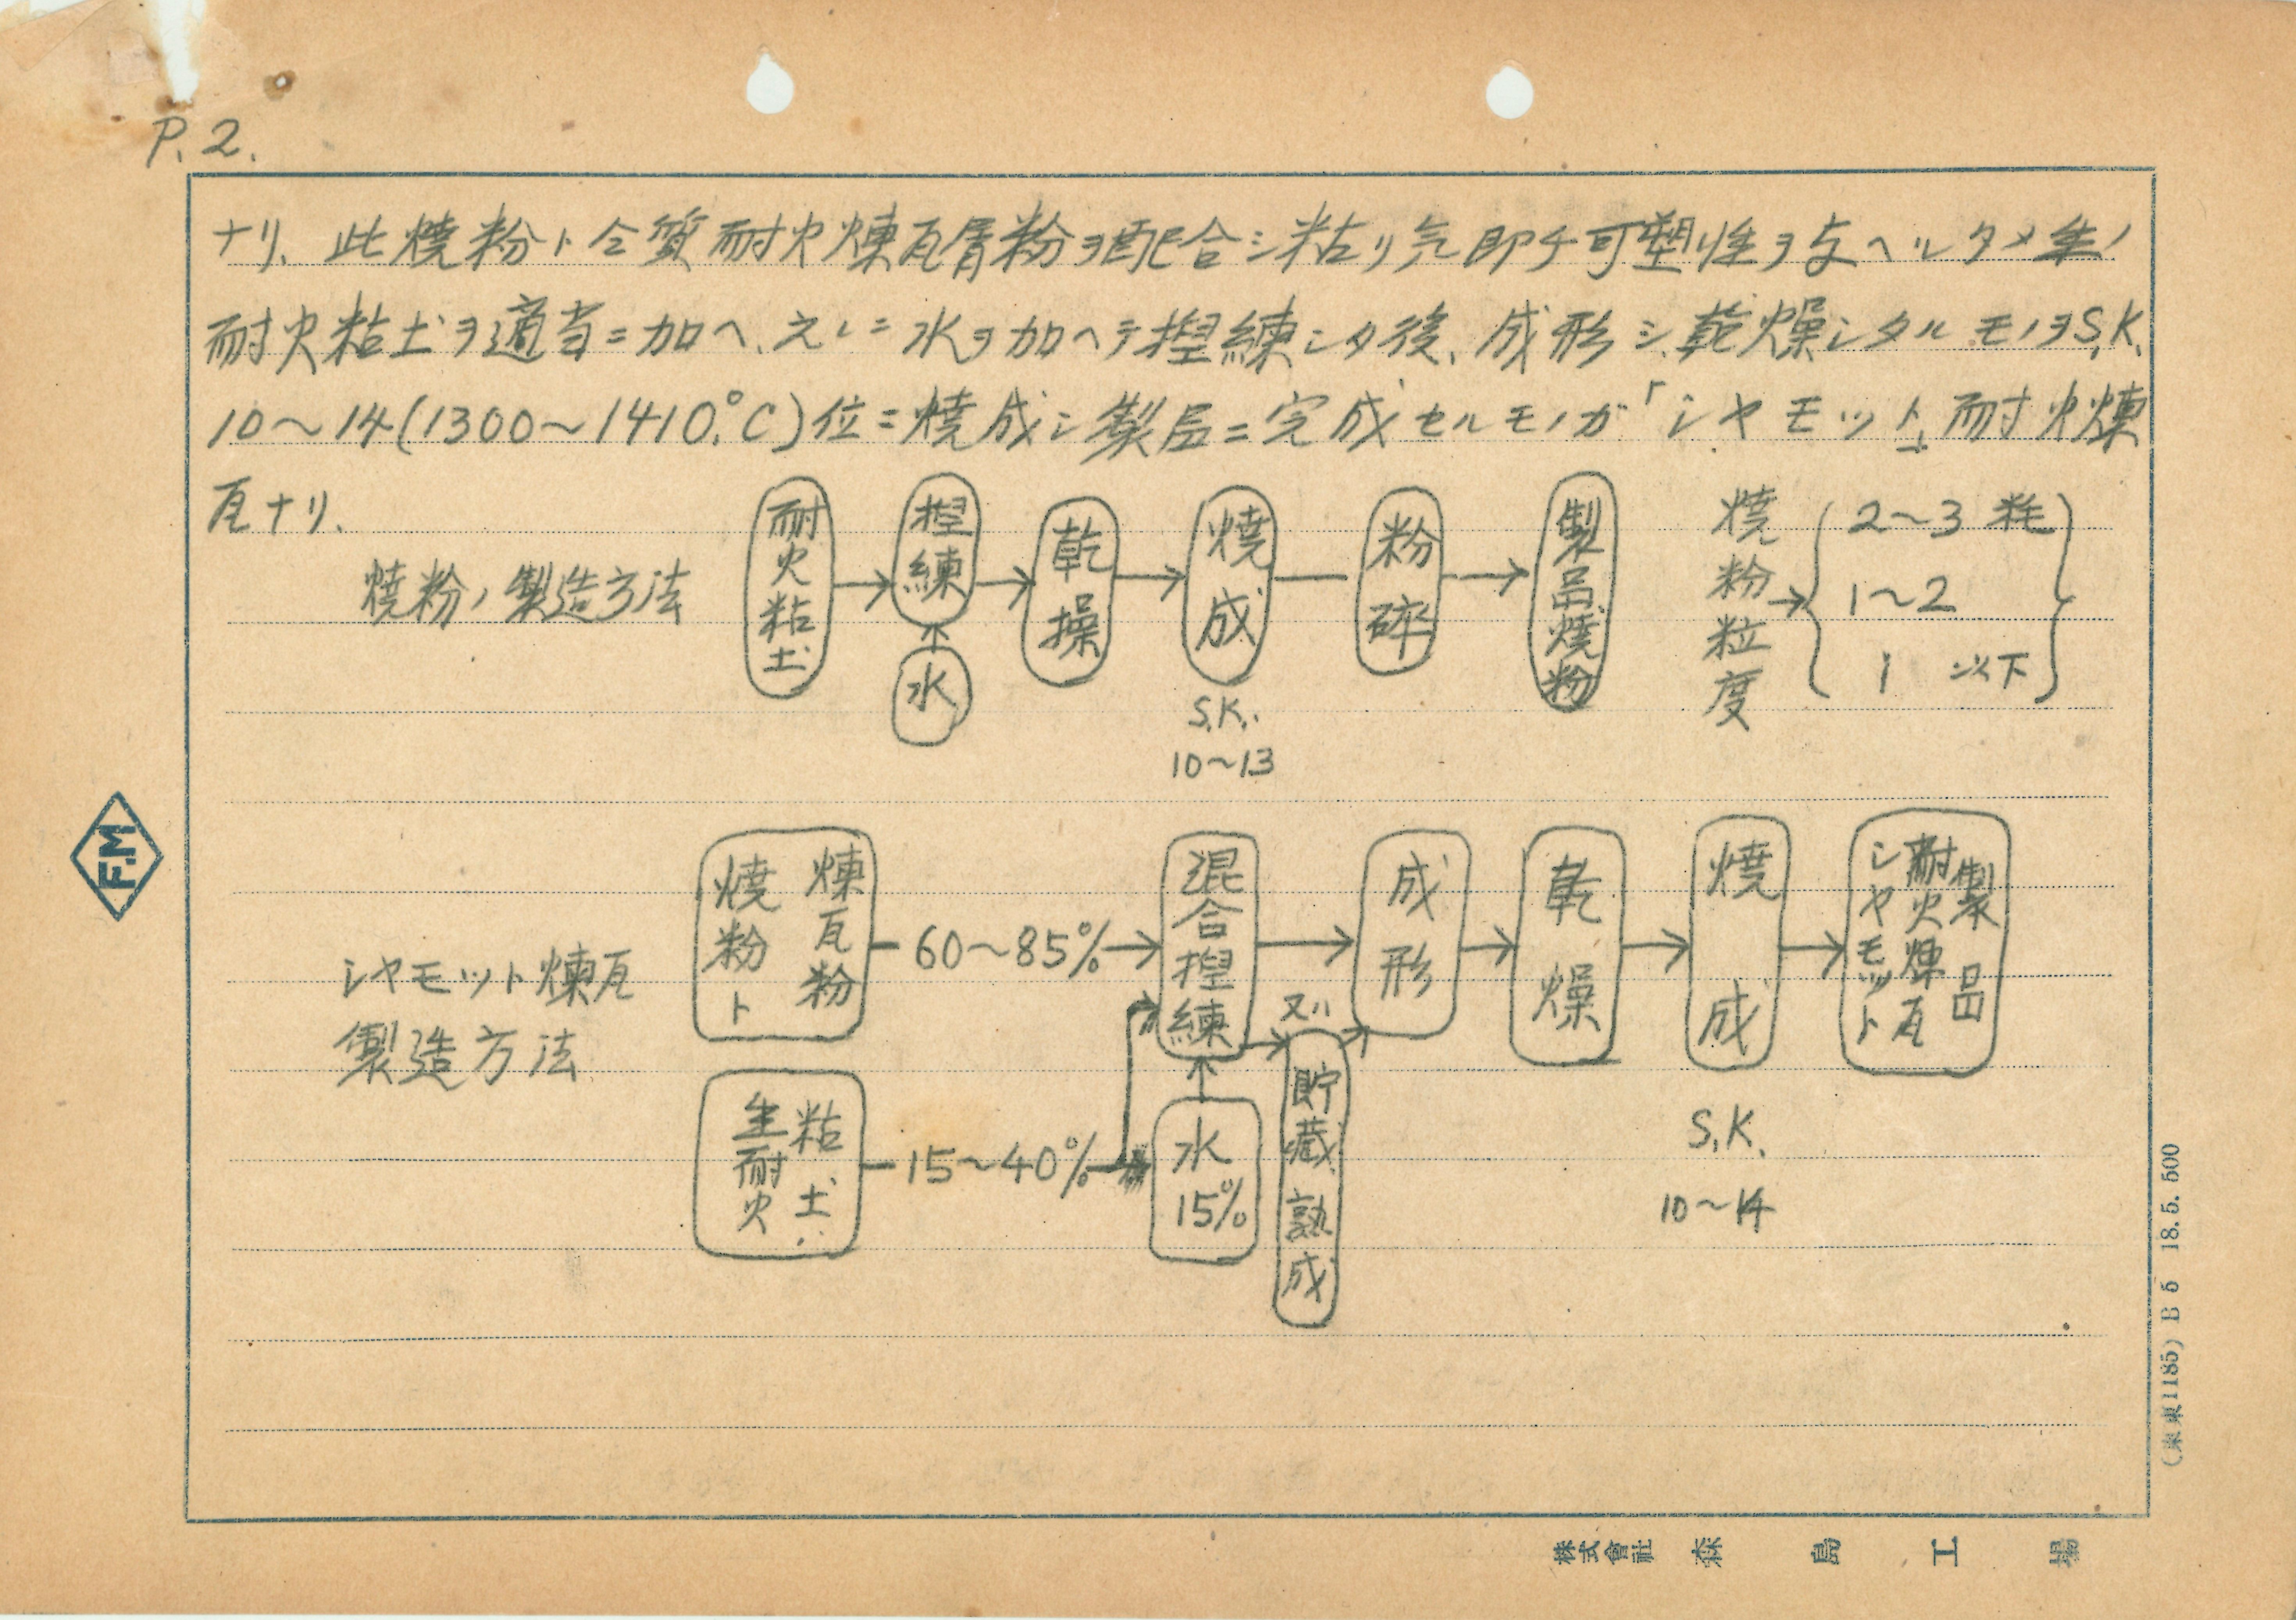 P.2.
ナリ、此焼粉ト仝質耐火煉瓦屑粉ヲ配合シ粘リ気即チ可塑性ヲ与ヘルタメ生ノ
耐火粘土ヲ適当ニ加ヘ、之レニ水ヲ加ヘテ捏練シタ後、成形シ、乾燥シタルモノヲS.K.
10〜14(1300〜1410.°C)位ニ焼成シ製品ニ完成セルモノガ「シヤモット」耐火煉
瓦ナリ、
焼粉ノ製造方法
耐火粘土
捏練
水
乾操
焼成
S.K.
10〜13
粉碎
製品焼粉
焼粉粒度
2〜3 粍
1〜2
1 以下
シヤモット煉瓦
製造方法
焼粉ト
煉瓦粉
60〜85%
生耐火
粘土
15〜40%
混合捏練
水
15%
又ハ
貯蔵熟成
成形
乾燥
焼成
S.K.
10〜14
製品
耐火煉瓦
シヤモット
F.M
(東東1185) B5 18.5.500
株式會社 森島工場